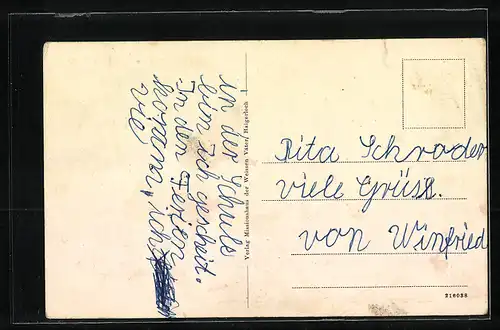 in der Schule
bin ich gescheit.
In den Ferien
viel
Verlag Missionshaus der Weissen Väter, Haigerloch
Rita Schroder
viele Grüss.
von Winfried